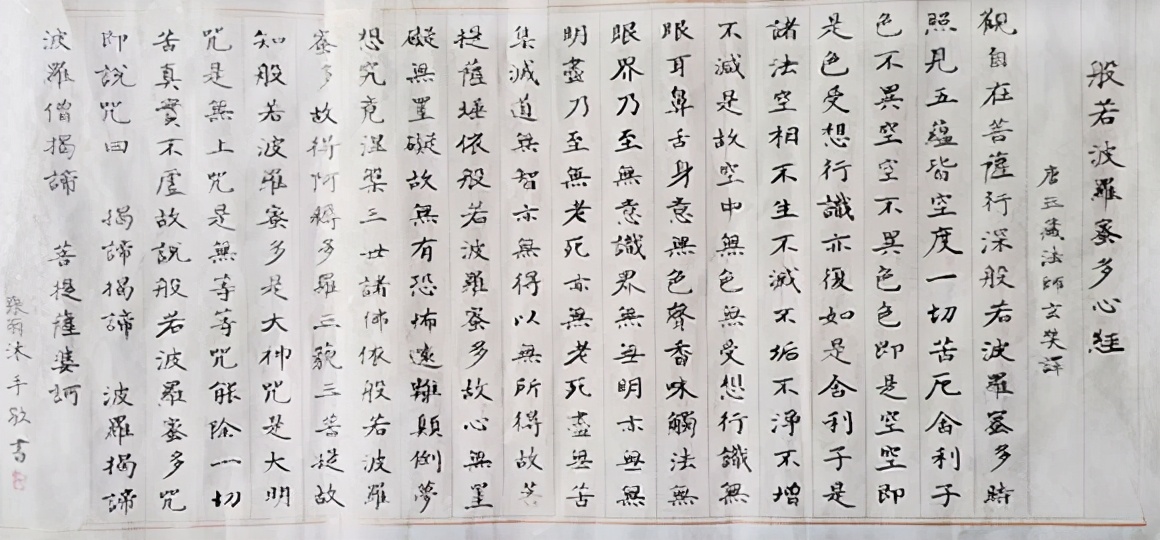 般若波羅蜜多心経
唐三藏法師玄奘譯
觀自在菩薩行深般若波羅蜜多時
照見五蘊皆空度一切苦厄舍利子
色不異空空不異色色即是空空即
是色受想行識亦復如是舍利子是
諸法空相不生不滅不垢不淨不增
不減是故空中無色無受想行識無
眼耳鼻舌身意無色聲香味觸法無
眼界乃至無意識界無無明亦無無
明盡乃至無老死亦無老死盡無苦
集滅道無智亦無得以無所得故菩
提薩埵依般若波羅蜜多故心無罣
礙無罣礙故無有恐怖遠離顛倒夢
想究竟涅槃三世諸佛依般若波羅
蜜多故得阿耨多羅三藐三菩提故
知般若波羅蜜多是大神咒是大明
咒是無上咒是無等等咒能除一切
苦真實不虛故說般若波羅蜜多咒
即說咒曰 揭諦揭諦 波羅揭諦
波羅僧揭諦 菩提薩婆訶
沐手敬書